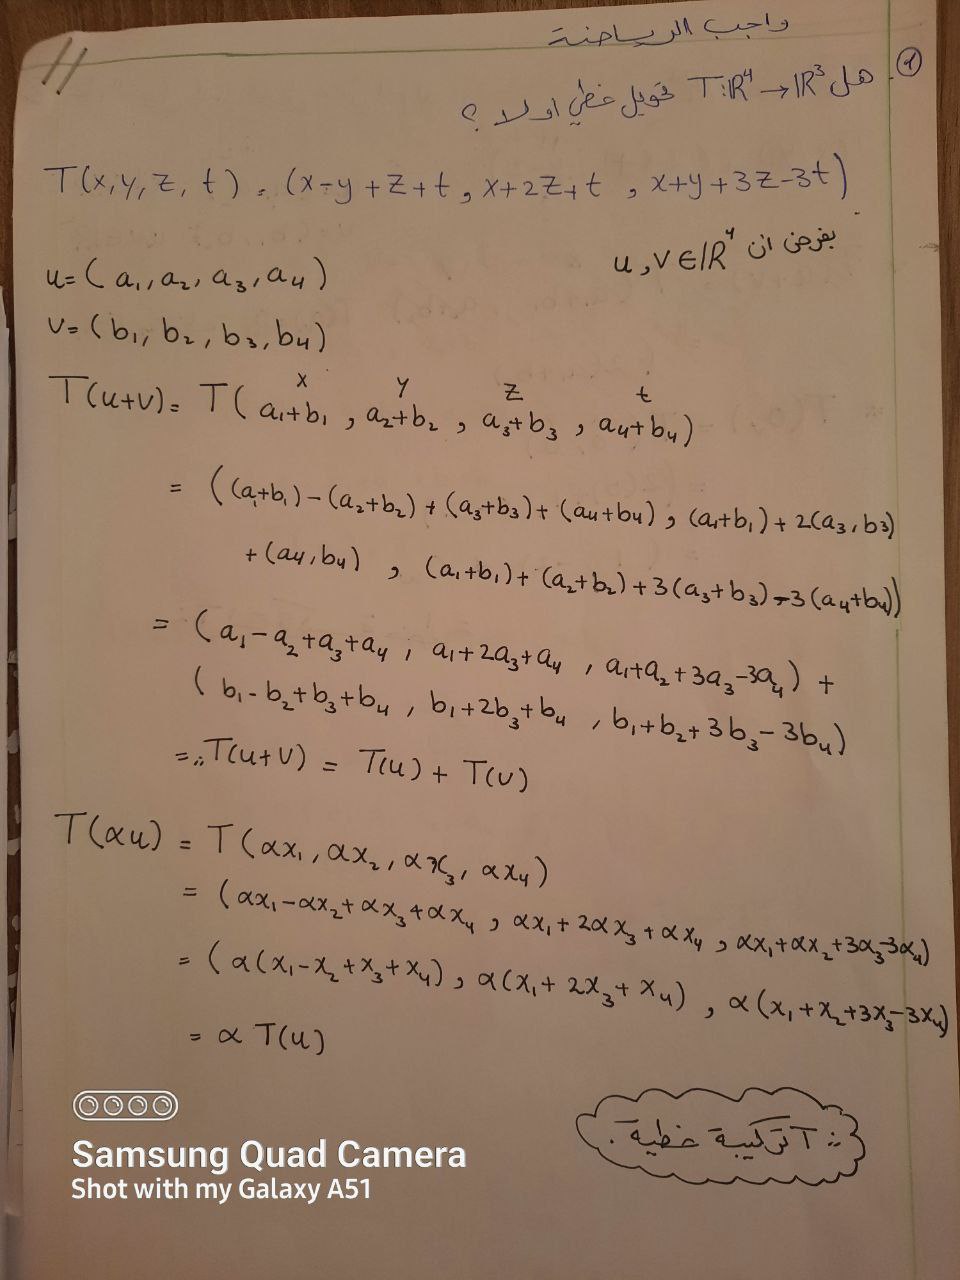 واجب الرياضة
① هل T:R⁴ → R³ تحويل خطي او لا ؟
T(x, y, z, t) = (x-y+z+t, x+2z+t, x+y+3z-3t)
بفرض ان u, v ∈ R⁴
u= (a₁, a₂, a₃, a₄)
v= (b₁, b₂, b₃, b₄)
x y z t
T(u+v)= T(a₁+b₁, a₂+b₂, a₃+b₃, a₄+b₄)
= ((a₁+b₁)-(a₂+b₂)+(a₃+b₃)+(a₄+b₄), (a₁+b₁)+2(a₃,b₃)
+(a₄,b₄), (a₁+b₁)+(a₂+b₂)+3(a₃+b₃)-3(a₄+b₄))
= (a₁-a₂+a₃+a₄, a₁+2a₃+a₄, a₁+a₂+3a₃-3a₄) +
(b₁-b₂+b₃+b₄, b₁+2b₃+b₄, b₁+b₂+3b₃-3b₄)
= ∴ T(u+v) = T(u) + T(v)
T(αu) = T(αx₁, αx₂, αx₃, αx₄)
= (αx₁-αx₂+αx₃+αx₄, αx₁+2αx₃+αx₄, αx₁+αx₂+3α₃-3α₄)
= (α(x₁-x₂+x₃+x₄), α(x₁+2x₃+x₄), α(x₁+x₂+3x₃-3x₄)
= α T(u)
∴ T تركيبة خطية.
Samsung Quad Camera
Shot with my Galaxy A51